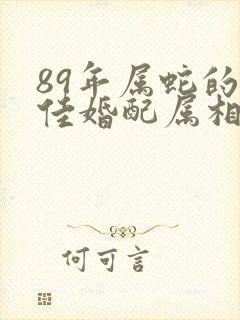 89年属蛇的
佳婚配属相
何可言